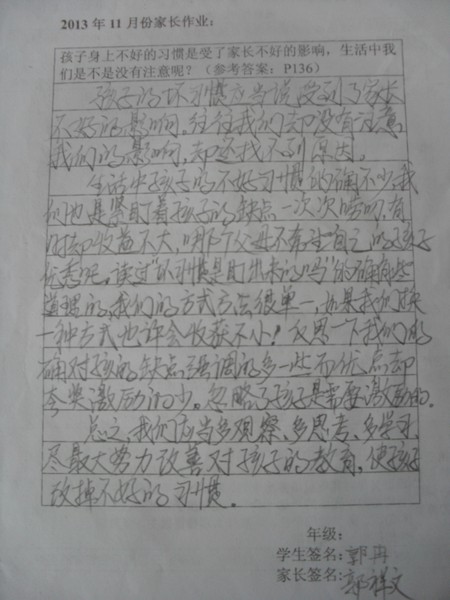 2013 年 11 月份家长作业：
孩子身上不好的习惯是受了家长不好的影响，生活中我
们是不是没有注意呢？（参考答案：P136）
孩子的坏习惯应当说受到了家长
不好的影响。往往我们却没有注意
我们的影响，却还找不到原因。
生活中孩子的不好习惯的确不少，我
们也是紧盯着孩子的缺点一次次唠叨，有
时却收益不大，哪个父母不希望自己的孩子
优秀呢。读过“坏习惯是盯出来的吗”的确有些
道理的，我们的方式方法很单一，如果我们换
一种方式也许会收获不小！反思一下我们的
确对孩子的缺点强调的多一些而优点却
夸奖激励的少。忽略了孩子是需要激励的。
总之，我们应当多观察、多思考、多学习，
尽最大努力改善对孩子的教育，使孩子
改掉不好的习惯。
年级：
学生签名：郭冉
家长签名：郭祥文